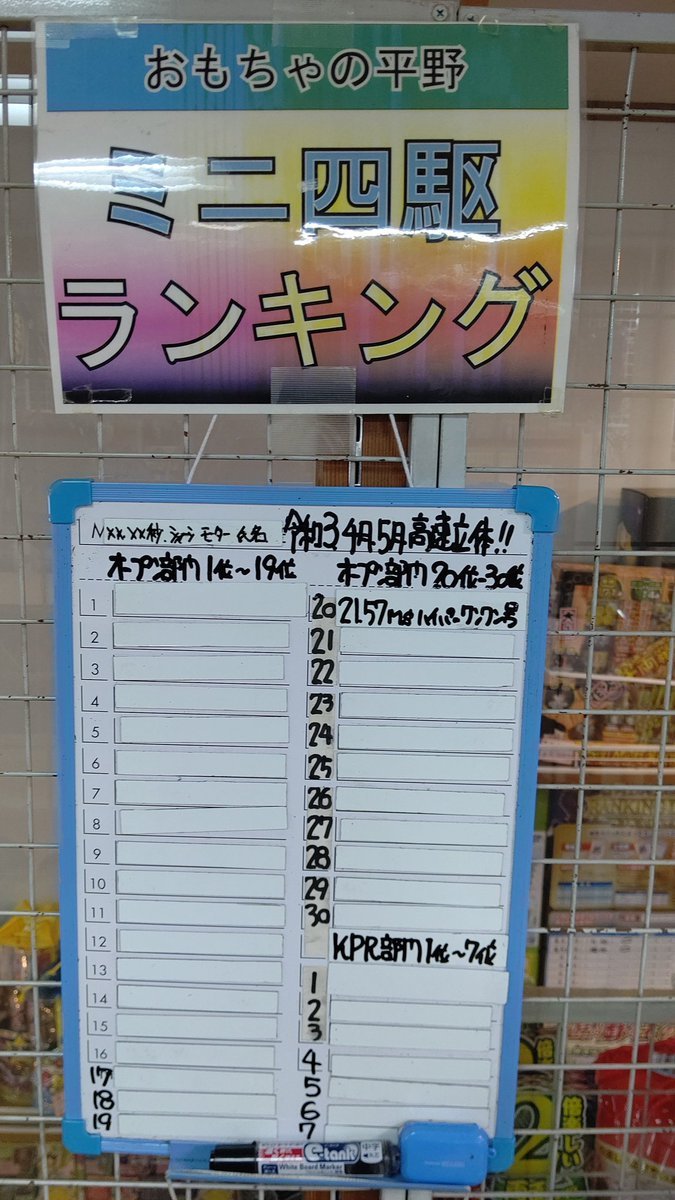 おもちゃの平野
ミニ四駆
ランキング
令和3.4月.5月高速立体!!
オープン部門1位〜19位
オープン部門20位-30位
1
2
3
4
5
6
7
8
9
10
11
12
13
14
15
16
17
18
19
20 21.57 Ms ハイパーワンワン号
21
22
23
24
25
26
27
28
29
30
KPR部門1位〜7位
1
2
3
4
5
6
7
G-tank
White Board Marker